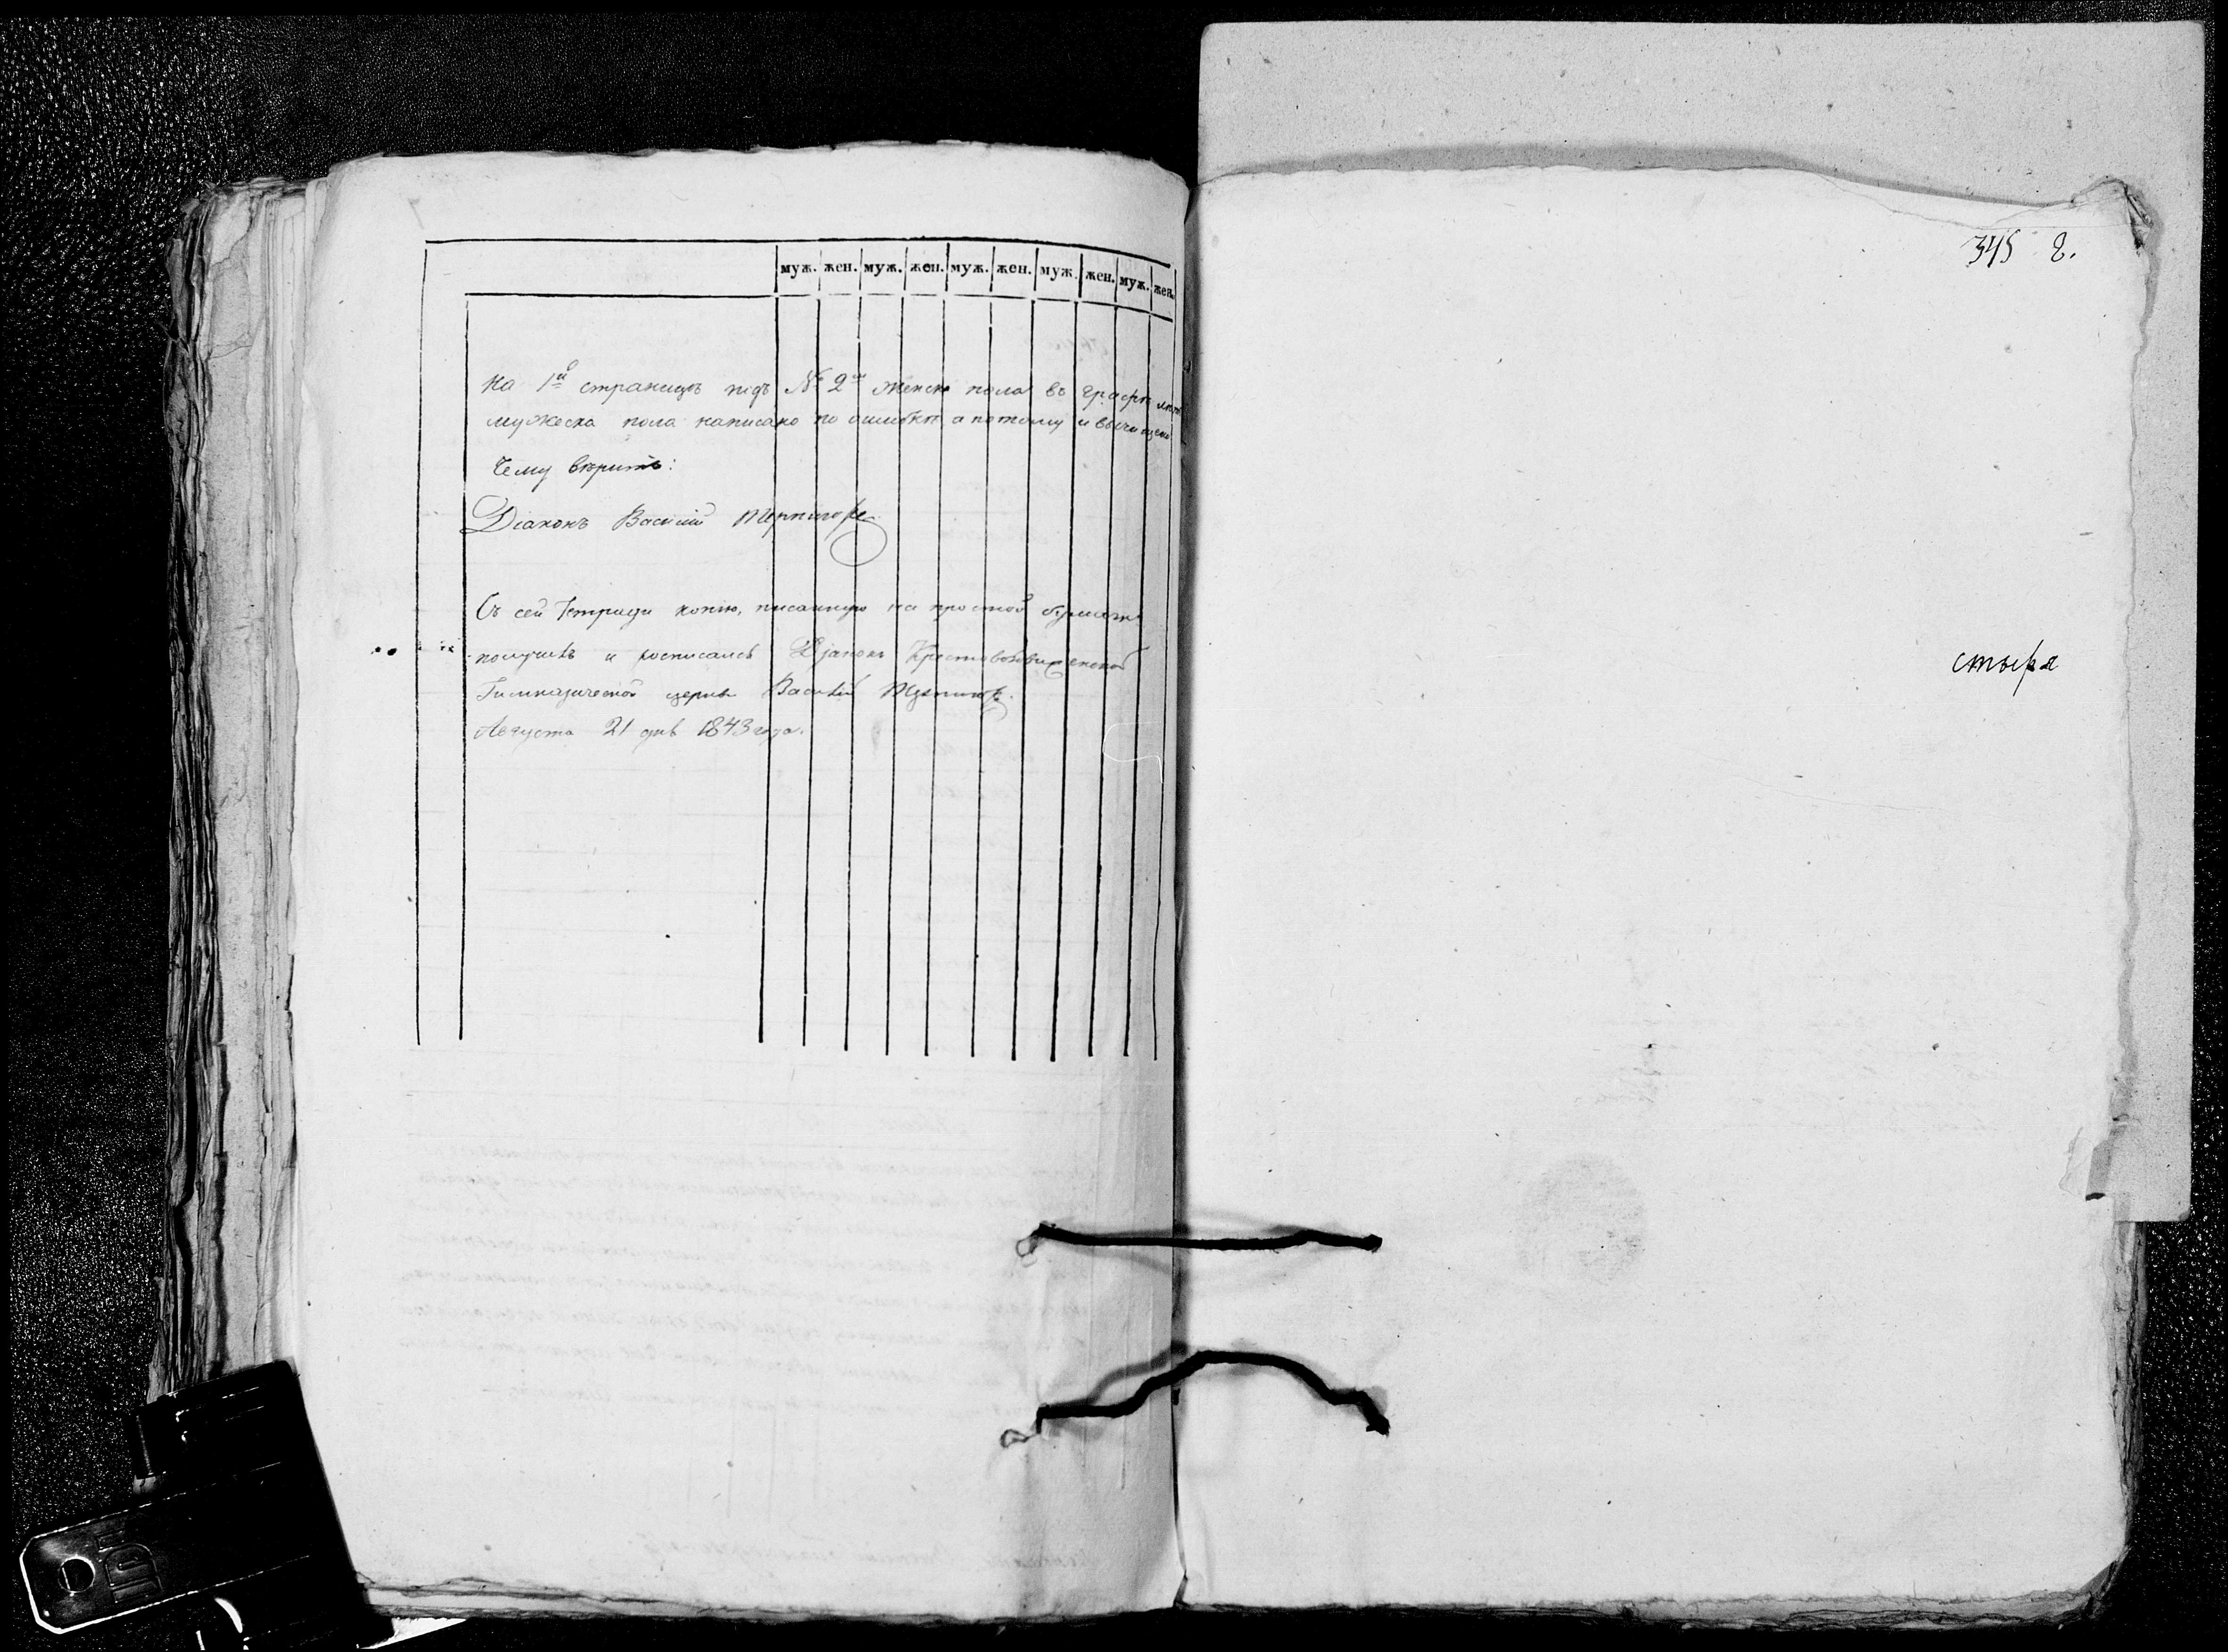 муж. жен. муж. жен. муж. жен. муж. жен. муж. жен.
на 1й страницѣ подъ № 2м женска пола въ графѣ
мужеска пола написано по ошибкѣ, а потому и вычищено
Чему вѣрить:
Діаконъ Василій
Съ сей тетради копію, писанную на простой бумагѣ
получилъ и росписался Діаконъ Крестовоздвиженской
Гимназической церкви Василій
Августа 21 дня 1843 года.
345 8.
стыря